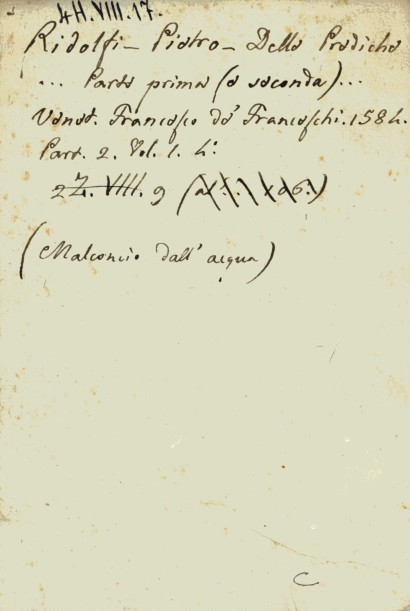 4H.VIII.17.
Ridolfi - Pietro - Delle Prediche
... Parte prima (e seconda)...
Venet. Francesco de' Franceschi. 1584.
Part. 2. Vol. 1. 4:
2 Z. VIII. 9
(Malconcio dall' acqua)
C